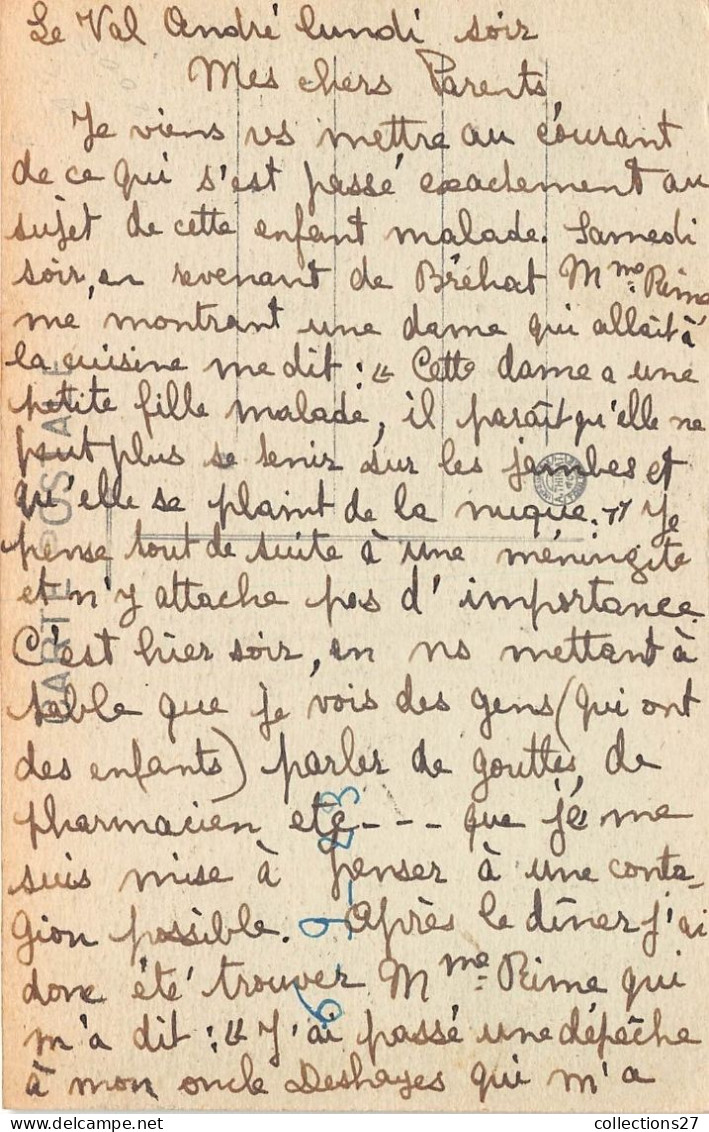 Le Val André lundi soir
Mes chers Parents
Je viens vs mettre au courant
de ce qui s'est passé exactement au
sujet de cette enfant malade. Samedi
soir, en revenant de Bréhat Mme Rime
me montrant une dame qui allait à
la cuisine me dit : " Cette dame a une
petite fille malade, il paraît qu'elle ne
peut plus se tenir sur les jambes et
qu'elle se plaint de la nuque. " Je
pense tout de suite à une méningite
et n'y attache pas d'importance.
C'est hier soir, en ns mettant à
table que je vois des gens (qui ont
des enfants) parler de gouttes, de
pharmacien etc --- que je me
suis mise à penser à une conta-
gion possible. Après le dîner j'ai
donc été trouver Mme Rime qui
m'a dit : " J'ai passé une dépêche
à mon oncle Deshayes qui m'a
CARTE POSTALE
collections27